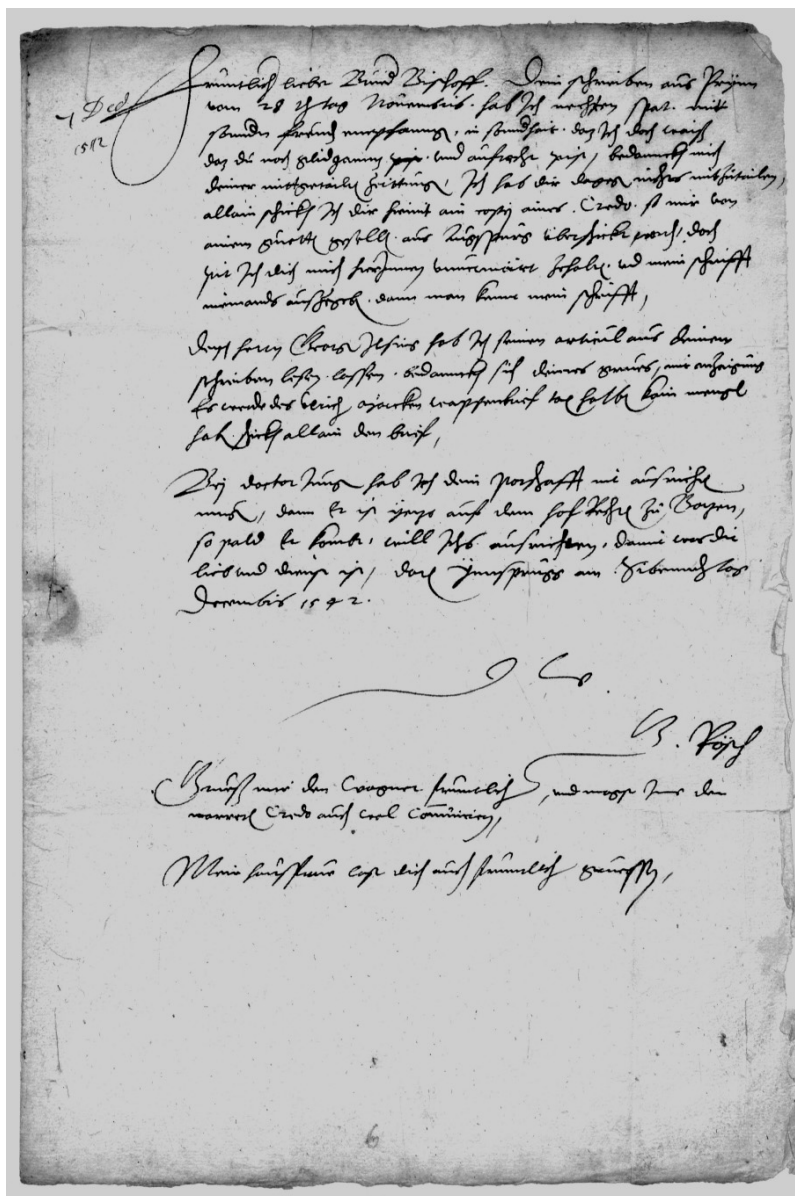 7 Decb
1542
Freuntlich lieber Bischoff. Dein schreiben aus
vom 28 tag Nouembris. hab Ich nechten spat. mit
empfangen, in sonderhait. daz Ich doch waiß
daz du noch vnd aufrecht pist, bedannckh mich
deiner mitgetailten Zeittung, Ich hab dir dagegen nichts mitzutailen,
allain schickh Ich dir hiemit ain copy aines. Credo. ist mir von
ainem guetten gesellen aus Augspurg vberschickt worden, doch
pit Ich dich mich hierInnen vnuermärt zehalten. vnd mein schrifft
niemands auszegeben. dann man kennt mein schrifft,
herrn Georg hab Ich seinen articul aus deinem
schreiben lesen lassen. bedannckht sich deines grues, mit anzaigung
Es werde des Vlrich halben kain mengl
hab. schickh allain den brief,
Bey doctor hab Ich dein potschafft nit ausrichten
mugen, dann Er ist yetzo auf dem hof Rechten zu Botzen,
so pald Er kombt, will Ichs ausrichten, damit was dir
lieb vnd dienst ist, datum Ynnsprugg am Sibenden tag
Decembris 1542.
Rösch
Grueß mir den Wagner freuntlich, vnd magst Ime den
Credo auch wol Comunicirn,
Mein hausfraw last dich auch freuntlich gruessen,
6